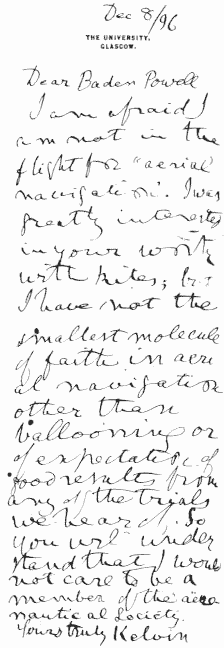 Dec 8/96
THE UNIVERSITY,
GLASGOW.
Dear Baden Powell
I am afraid I
am not in the
flight for "aerial
navigation". I was
greatly interested
in your work
with kites; but
I have not the
smallest molecule
of faith in aeri
al navigation
other than
ballooning or
of expectation of
good results from
any of the trials
we hear of. So
you will under
stand that I would
not care to be a
member of the aëro
nautical Society.
Yours truly Kelvin